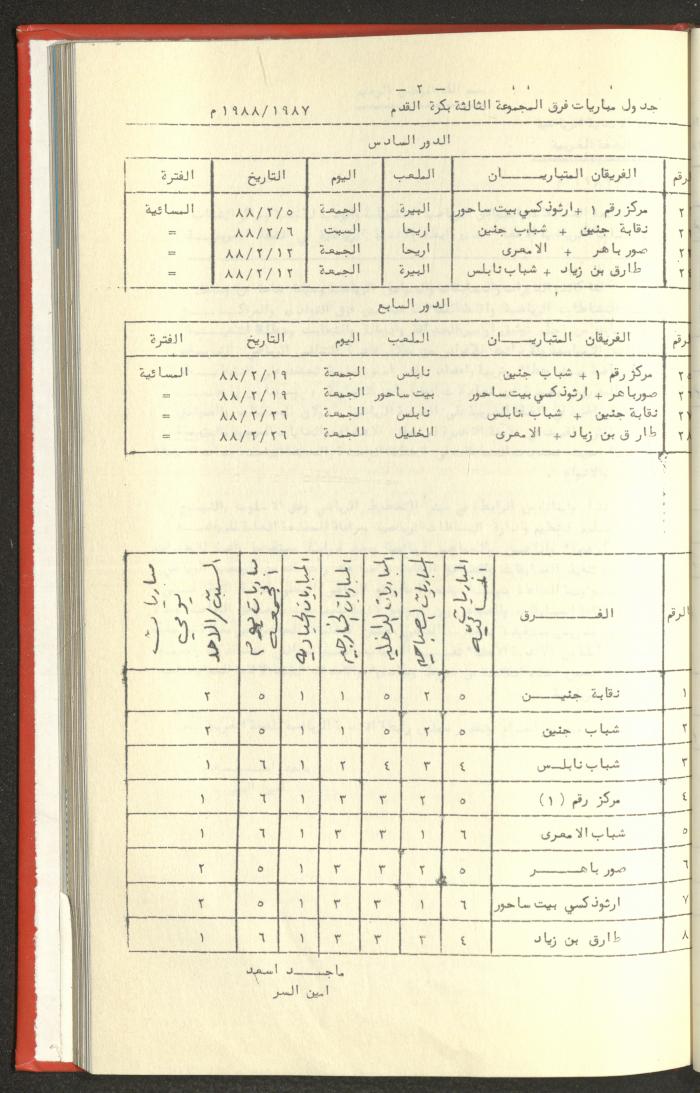 - ٢ -
جدول مباريات فرق المجموعة الثالثة بكرة القدم ١٩٨٨/١٩٨٧ م
الدور السادس
الرقم الفريقان المتباريـــــــان الملعب اليوم التاريخ الفترة
مركز رقم ١ + ارثوذكسي بيت ساحور البيرة الجمعة ٨٨/٢/٥ المسائية
نقابة جنين + شباب جنين اريحا السبت ٨٨/٢/٦ =
صور باهر + الامعرى اريحا الجمعة ٨٨/٢/١٢ =
طارق بن زياد + شباب نابلس البيرة الجمعة ٨٨/٢/١٢ =
الدور السابع
الرقم الفريقان المتباريـــــــان الملعب اليوم التاريخ الفترة
٢٥ مركز رقم ١ + شباب جنين نابلس الجمعة ٨٨/٢/١٩ المسائية
٢٦ صورباهر + ارثوذكسي بيت ساحور بيت ساحور الجمعة ٨٨/٢/١٩ =
نقابة جنين + شباب نابلس نابلس الجمعة ٨٨/٢/٢٦ =
٢٨ طارق بن زياد + الامعرى الخليل الجمعة ٨٨/٢/٢٦ =
الرقم الفـــــــــرق المباريات المسائية المباريات الصباحيه المباريات الداخليه المباريات الخارجيه المباريات الحياديه مباريات يوم الجمعه مباريات يومي السبت/الاحد
١ نقابة جنيـــــن ٥ ٢ ٥ ١ ١ ٥ ٢
٢ شباب جنين ٥ ٢ ٥ ١ ١ ٥ ٢
٣ شباب نابلــس ٤ ٣ ٤ ٢ ١ ٦ ١
٤ مركز رقم (١) ٥ ٢ ٣ ٣ ١ ٦ ١
٥ شباب الامعرى ٦ ١ ٣ ٣ ١ ٦ ١
٦ صور باهـــــــر ٥ ٢ ٣ ٣ ١ ٥ ٢
٧ ارثوذكسي بيت ساحور ٦ ١ ٣ ٣ ١ ٥ ٢
٨ طارق بن زياد ٤ ٣ ٣ ٣ ١ ٦ ١
ماجـــــد اسعد
امين السر